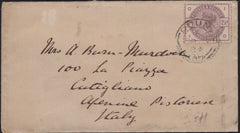 Mrs A Burn-Murdoch
100 La Piazza
Cutigliano
Apennine Pistoiese
Italy